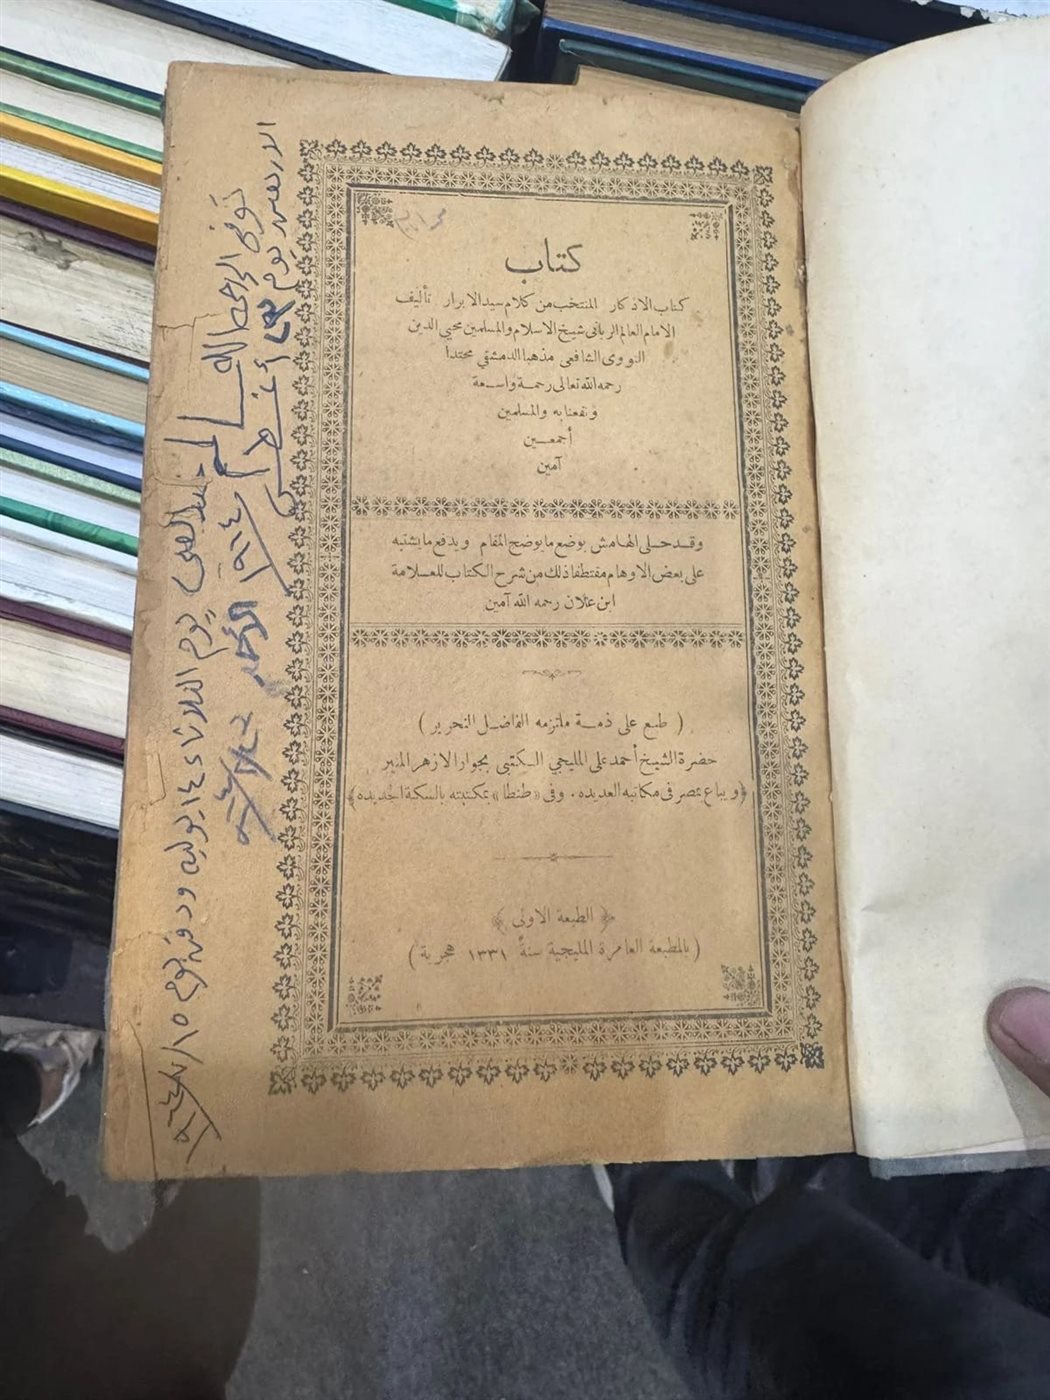 كتاب
كتاب الاذكار المنتخب من كلام سيد الابرار تأليف
الامام العالم الربانى شيخ الاسلام والمسلمين محيي الدين
النووى الشافعى مذهبا الدمشقي محتدا
رحمه الله تعالى رحمة واسعة
ونفعنا به والمسلمين
أجمعين
آمين
وقد حلى الهامش بوضع ما يوضح المقام ويدفع ما يشتبه
على بعض الاوهام مقتطفا ذلك من شرح الكتاب للعلامة
ابن علان رحمه الله آمين
( طبع على ذمة ملتزمه الفاضل النحرير )
حضرة الشيخ أحمد على المليجي الكتبي بجوار الازهر المنير
﴿ ويباع بمصر فى مكاتبه العديده . وفى « طنطا » بمكتبته بالسكة الجديدة ﴾
﴿ الطبعة الاولى ﴾
( بالمطبعة العامرة المليجية سنة ١٣٣١ هجرية )
توفى الى رحمة الله
يوم الثلاثاء ١٤ يوليه ودفن يوم ١٥